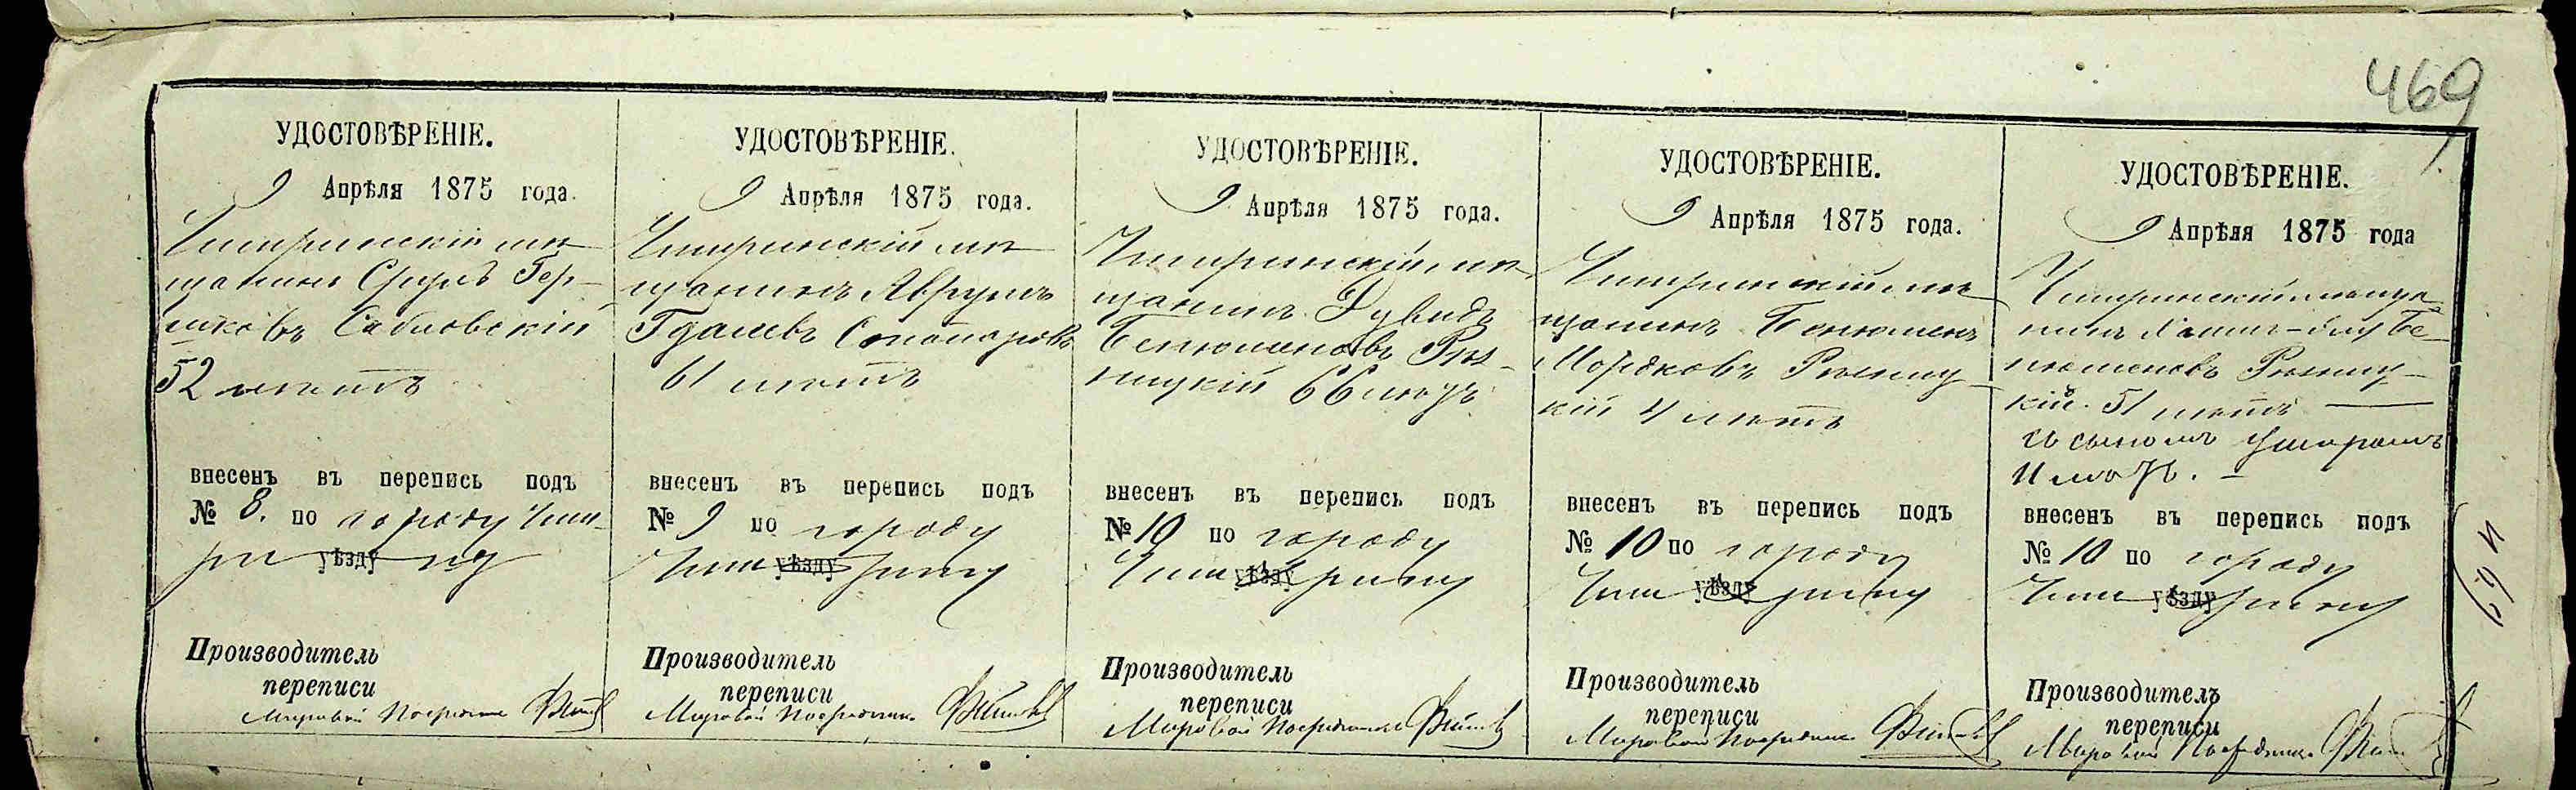 469
УДОСТОВѢРЕНІЕ.
9 Апрѣля 1875 года.
Чигиринскій мѣ-
щанинъ Сруль Гер-
шковъ Сабловскій
52 лѣтъ
внесенъ въ перепись подъ
№ 8. по городу Чиги-
ри уѣзду ну
Производитель
переписи
Мировой Посредникъ
УДОСТОВѢРЕНІЕ.
9 Апрѣля 1875 года.
Чигиринскій мѣ-
щанинъ Аврумъ
Гдалевъ
61 лѣтъ
внесенъ въ перепись подъ
№ 9 по городу
Чиги уѣзду рину
Производитель
переписи
Мировой Посредникъ
УДОСТОВѢРЕНІЕ.
9 Апрѣля 1875 года.
Чигиринскій мѣ-
щанинъ Дувидъ
Бенюменовъ Рѣз-
ницкій 66 лѣтъ
внесенъ въ перепись подъ
№ 10 по городу
Чиги уѣзду рину
Производитель
переписи
Мировой Посредникъ
УДОСТОВѢРЕНІЕ.
9 Апрѣля 1875 года.
Чигиринскій мѣ-
щанинъ Бенюменъ
Мордковъ Рѣзниц-
кій 4 лѣтъ
внесенъ въ перепись подъ
№ 10 по городу
Чиги уѣзду рину
Производитель
переписи
Мировой Посредникъ
УДОСТОВѢРЕНІЕ.
9 Апрѣля 1875 года
Чигиринскій мѣща-
нинъ Бе-
нюменовъ Рѣзниц-
кій. 51 лѣтъ
съ сыномъ
11 лѣтъ.
внесенъ въ перепись подъ
№ 10 по городу
Чиги уѣзду рину
Производитель
переписи
Мировой Посредникъ